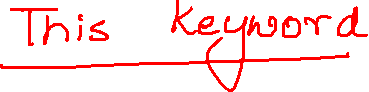 This Keyword